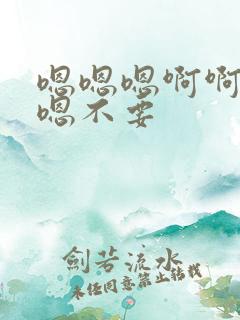 嗯嗯嗯啊啊
嗯不要
剑若流水
未经同意禁止转载